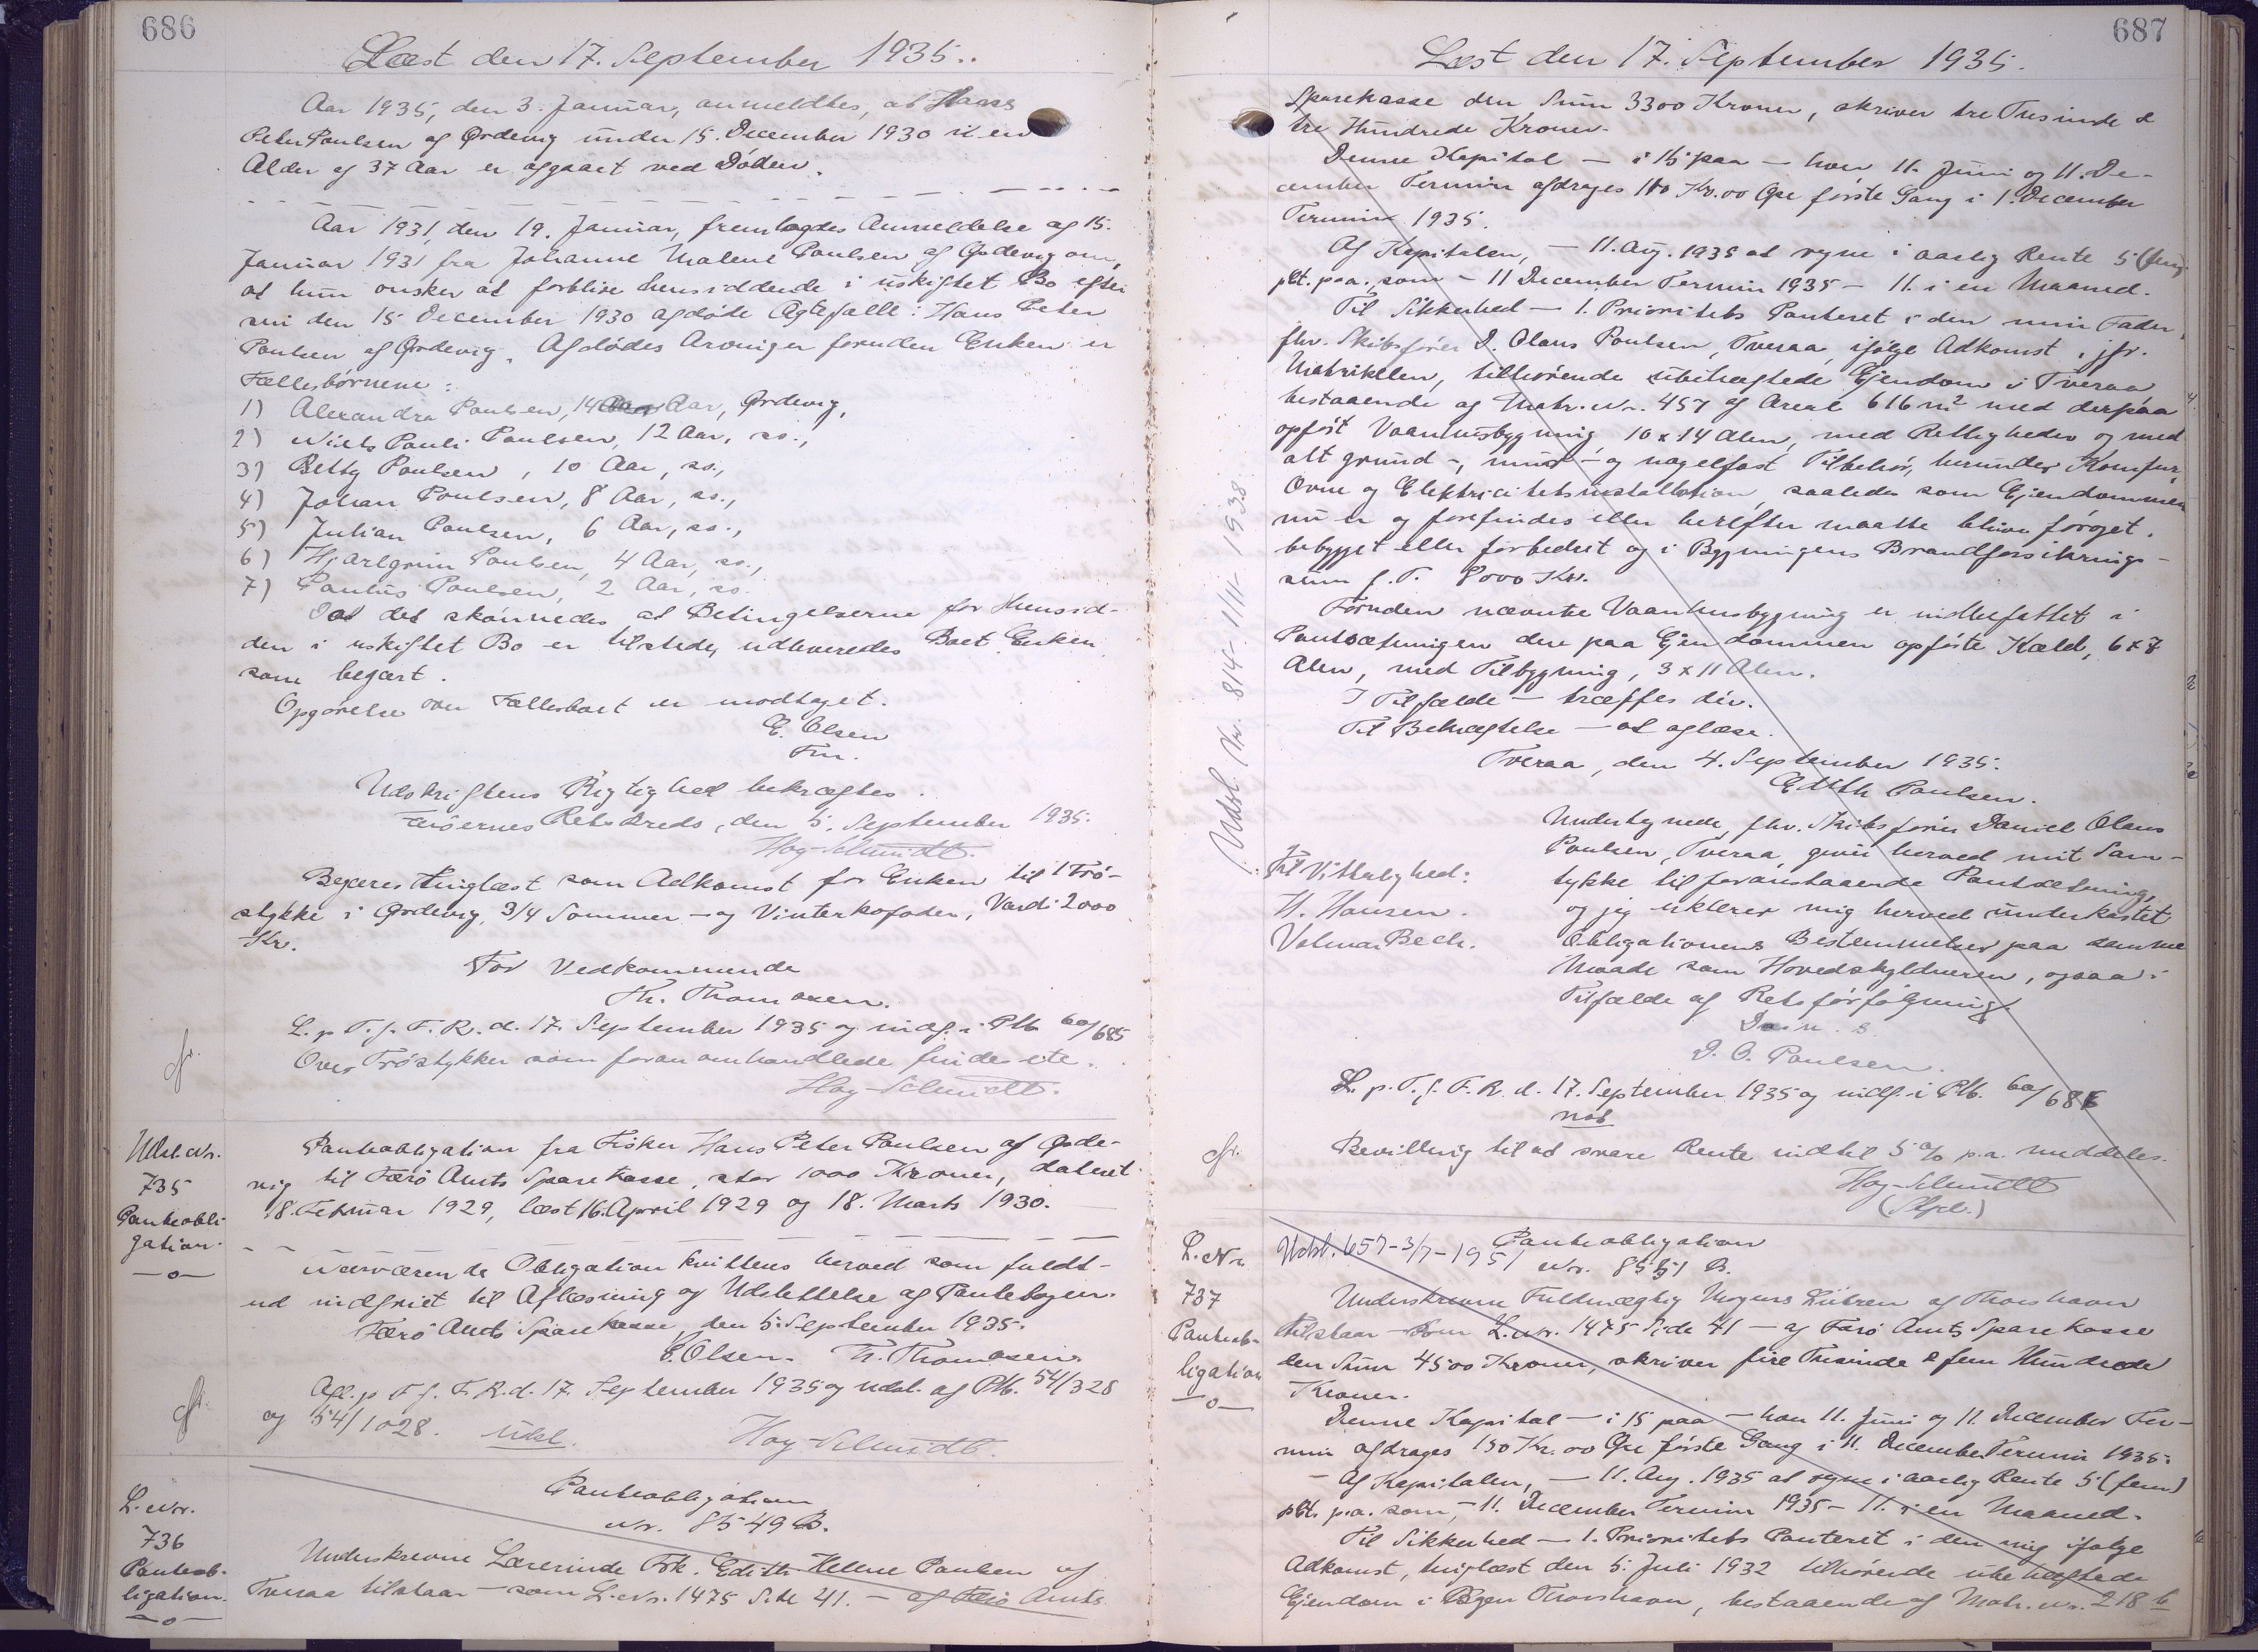 686
Læst den 17. September 1935.
Aar 1935, den 3. Januar, anmeldtes, at Hans
Peter Poulsen af Ørdevig under 15. December 1930 i en
Alder af 37 Aar er afgaaet ved Døden.
Aar 1931, den 19. Januar, fremlagdes Anmeldelse af 15.
Januar 1931 fra Johanne Malene Poulsen af Ørdevig om,
at hun ønsker at forblive hensiddende i uskiftet Bo efter
sin den 15 December 1930 afdøde Ægtefælle: Hans Peter
Poulsen af Ørdevig. Afdødes Arvinger foruden Enken er
Fællesbørnene:
1) Alexandra Poulsen, 14 Aar, Ørdevig,
2) Niels Pauli Poulsen, 12 Aar, so.,
3) Betty Poulsen, 10 Aar, so.,
4) Johan Poulsen, 8 Aar, so.,
5) Julian Poulsen, 6 Aar, so.,
6) Hjartgrim Poulsen, 4 Aar, so.,
7) Paulus Poulsen, 2 Aar, so.
Da det skønnedes at Betingelserne for Hensid-
den i uskiftet Bo er tilstede, udleveredes Boet Enken
som begært.
Opgørelse over Fællesboet er modtaget.
E. Olsen
Fm.
Udskriftens Rigtighed bekræftes.
Færøernes Retskreds, den 5. September 1935.
Høg-Schmidt.
Begæres tinglæst som Adkomst for Enken til 1 Trø-
stykke i Ørdevig, 3/4 Sommer- og Vinterkofoder, Værdi 2000
Kr.
For Vedkommende
Th. Thomasen.
L. p. T. f. F. R. d. 17. September 1935 og indf. i Ptb. 60/685
Over Trøstykker som foran omhandlede findes ete.
Høg-Schmidt.
cfr.
Udsl. Nr.
735
Panteobli-
gation.
—o—
Panteobligation fra Fisker Hans Peter Poulsen af Ørde-
vig til Færø Amts Sparekasse, stor 1000 Kroner, dateret
18. Februar 1929, læst 16. April 1929 og 18. Marts 1930.
Nærværende Obligation kvitteres herved som fuldt-
ud indfriet til Aflæsning og Udslettelse af Pantebogen.
Færø Amts Sparekasse, den 5. September 1935.
E. Olsen. Th. Thomasen.
Afl. p. T. f. F. R. d. 17. September 1935 og udsl. af Ptb. 54/328
og 54/1028. Udsl.
Høg-Schmidt.
cfr.
L. Nr.
736
Panteob-
ligation.
—o—
Panteobligation
Nr. 8549 B.
Underskrevne Lærerinde Frk. Edith Helene Poulsen af
Tveraa tilstaar — som L. Nr. 1475 Side 41. — af Færø Amts
687
Læst den 17. September 1935.
Sparekasse den Sum 3300 Kroner, skriver tre Tusinde &
tre Hundrede Kroner.
Denne Kapital — i 15 paa — hver 11. Juni og 11. De-
cember Termin afdrages 110 Kr. 00 Øre første Gang i 11. December
Termin 1935.
Af Kapitalen, — 11. Aug. 1935 at regne i aarlig Rente 5 (fem)
pCt. p.a., som — 11 December Termin 1935 — 11. i en Maaned.
Til Sikkerhed — 1. Prioritets Panteret i den min Fader,
fhv. Skibsfører D. Olaus Poulsen, Tveraa, ifølge Adkomst, jfr.
Matriklen, tilhørende ubehæftede Ejendom i Tveraa
bestaaende af Matr. Nr. 457 af Areal 616 m² med derpaa
opført Vaaningsbygning, 10 x 14 Alen, med Rettigheder og med
alt grund-, mur- og nagelfast Tilbehør, herunder Komfur,
Ovne og Elektricitetsinstallation, saaledes som Ejendommen
nu er og forefindes eller herefter maatte blive forøget,
bebygget eller forbedret og i Bygningens Brandforsikrings-
sum p.T. 8000 Kr.
Foruden nævnte Vaaningsbygning er indbefattet i
Pantsætningen den paa Ejendommen opførte Kæld, 6 x 7
Alen, med Tilbygning, 3 x 11 Alen.
I Tilfælde — træffes div.
Til Bekræftelse — at aflæse.
Tveraa, den 4. September 1935.
Edith Poulsen.
Undertegnede, fhv. Skibsfører Daniel Olaus
Poulsen, Tveraa, giver herved mit Sam-
tykke til foranstaaende Pantsætning,
og jeg erklærer mig herved underkastet
Obligationens Bestemmelser paa samme
Maade som Hovedskyldneren, ogsaa i
Tilfælde af Retsforfølgning.
D. O. Poulsen.
Til Vitterlighed:
H. Hansen.
Valmar Bech.
Udsl. Nr. 814 - 1/11 - 1938
L. p. T. f. F. R. d. 17. September 1935 og indf. i Ptb. 60/686
not
Bevilling til at svare Rente indtil 5 % p.a. meddeles.
Høg-Schmidt
cfr.
L. Nr.
737
Panteob-
ligation
—o—
Udsl. 657 - 3/7 - 1951
Panteobligation
Nr. 8551 B.
Underskrevne Fuldmægtig Mogens Lützen af Thorshavn
tilstaar — som L. Nr. 1475 Side 41 — af Færø Amts Sparekasse
den Sum 4500 Kroner, skriver fire Tusinde & fem Hundrede
Kroner.
Denne Kapital — i 15 paa — hver 11. Juni og 11. December Ter-
min afdrages 150 Kr. 00 Øre første Gang i 11. December Termin 1935.
— Af Kapitalen, — 11. Aug. 1935 at regne i aarlig Rente 5 (fem)
pCt. p.a. som, — 11. December Termin 1935 — 11. i en Maaned.
Til Sikkerhed — 1. Prioritets Panteret i den mig ifølge
Adkomst, tinglæst den 5. Juli 1932 tilhørende ubehæftede
Ejendom i Byen Thorshavn, bestaaende af Matr. Nr. 218 b